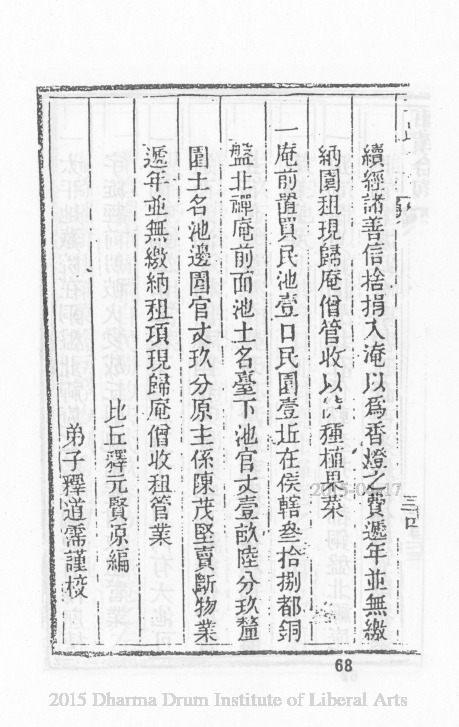 續經諸善信捨捐入淹以為香燈之費遞年並無繳
納園租現歸庵僧管收以 種植果菜
一庵前置買民池壹口民園壹坵在侯轄叁拾捌都銅
盤北禪庵前面池土名臺下池官丈壹畝陸分玖釐
園土名池邊園官丈玖分原主係陳茂堅賣斷物業
遞年並無繳納租項現歸庵僧收租管業
比丘釋元賢原編
弟子釋道霈謹校
三四
68
2015 Dharma Drum Institute of Liberal Arts